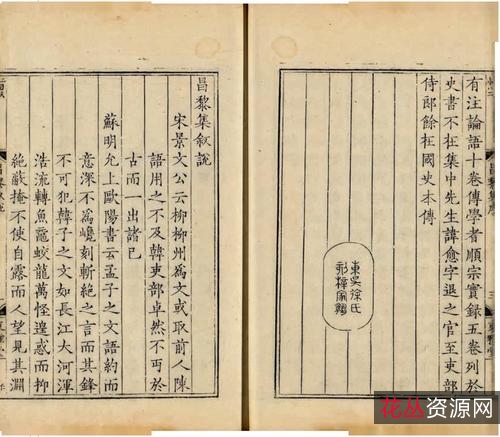 有注論語十卷傳學者順宗實錄五卷列於
史書不扗集中先生諱愈字退之官至吏部
侍郎餘扗國史本傳
東吳徐氏
刻梓家塾
昌黎集叙說
宋景文公云柳柳州為文或取前人陳
語用之不及韓吏部卓然不丐於
古而一出諸己
蘇明允上歐陽書云孟子之文語約而
意深不為巉刻斬絶之言而其鋒
不可犯韓子之文如長江大河渾
浩流轉魚黿蛟龍萬怪遑惑而抑
絶蔽掩不使自露而人望見其淵
花丛资源网